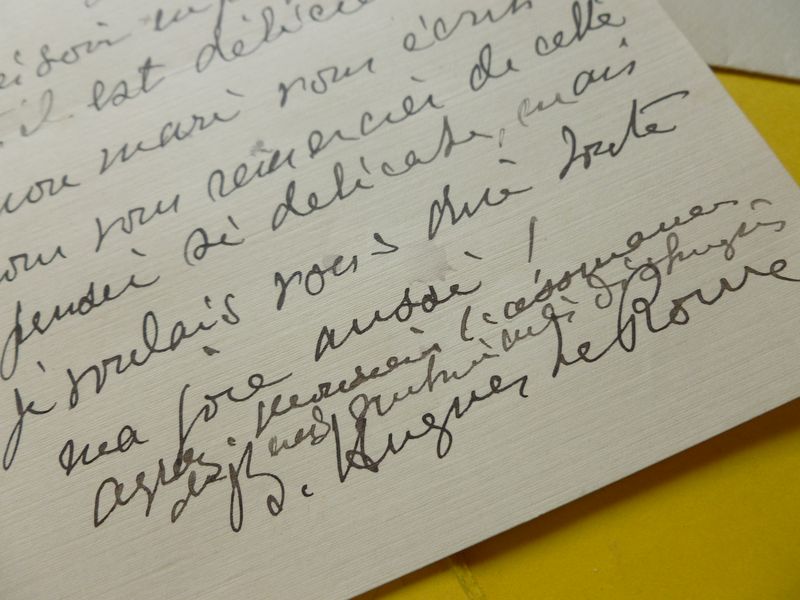 il est délicie
mon mari vous écrit
pour vous remercier de cette
pensée si délicate, mais
je voulais vous dire toute
ma joie aussi !
agréez, monsieur, l'assurance
de mes sentiments distingués
S. Hugues Le Roux